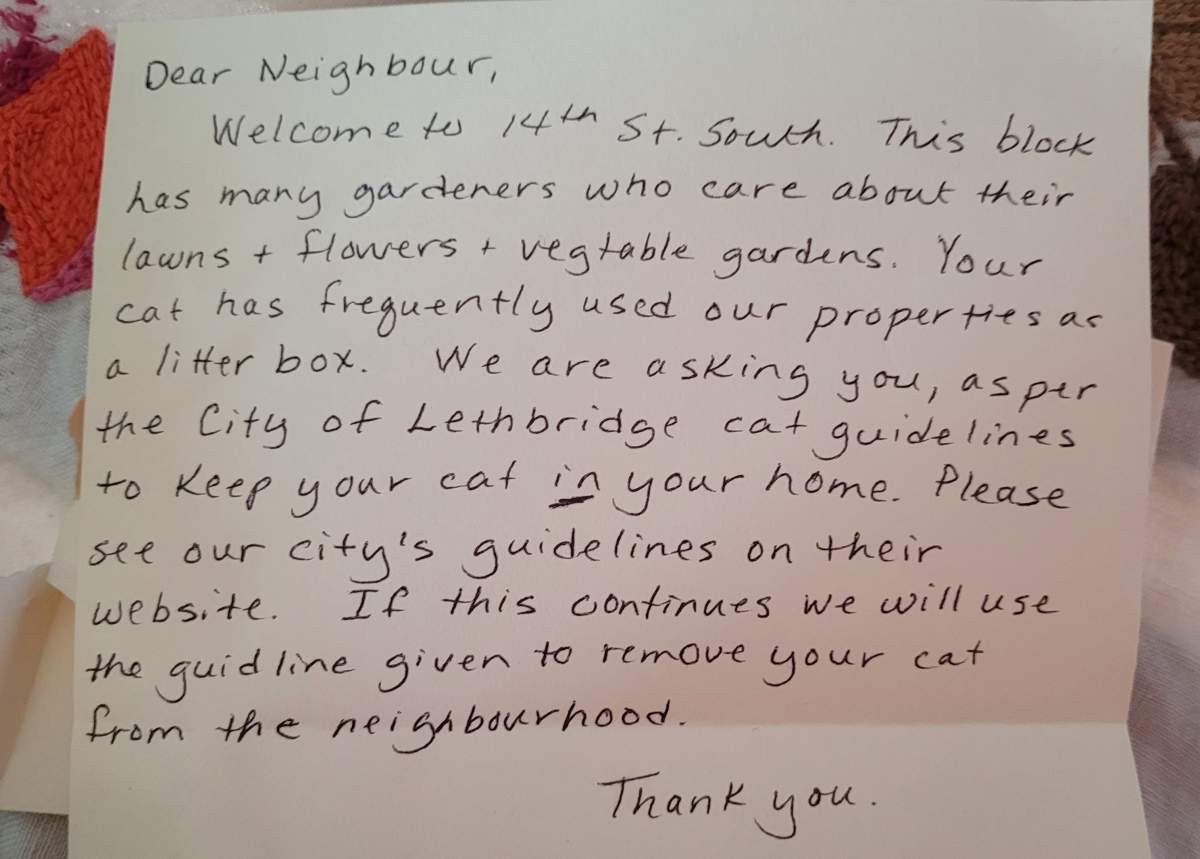 Dear Neighbour,
Welcome to 14th St. South. This block
has many gardeners who care about their
lawns + flowers + vegtable gardens. Your
cat has frequently used our properties as
a litter box. We are asking you, as per
the City of Lethbridge cat guidelines
to keep your cat in your home. Please
see our city's guidelines on their
website. If this continues we will use
the guidline given to remove your cat
from the neighbourhood.
Thank you.